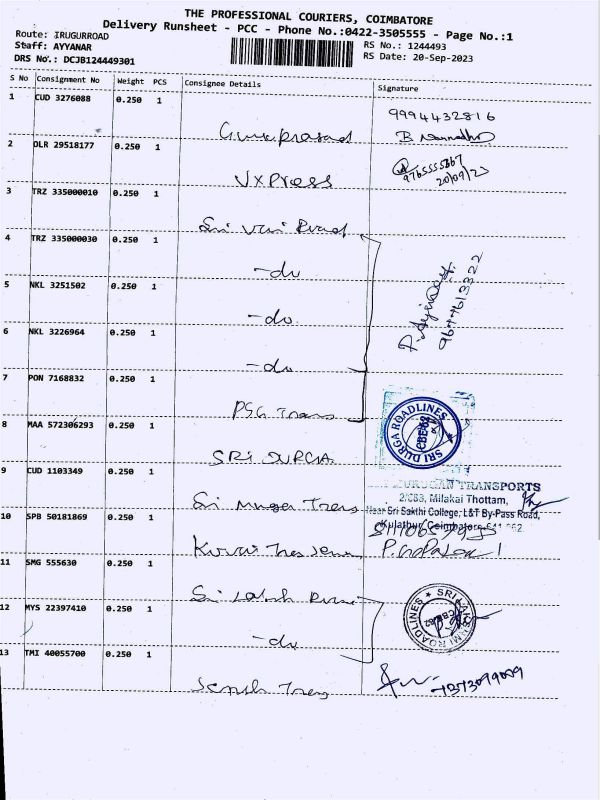 THE PROFESSIONAL COURIERS, COIMBATORE
Delivery Runsheet - PCC - Phone No.:0422-3505555 - Page No.:1
Route: IRUGURROAD
Staff: AYYANAR
DRS No.: DCJB124449301
RS No.: 1244493
RS Date: 20-Sep-2023
S No Consignment No Weight PCS Consignee Details Signature
1 CUD 3276088 0.250 1
9994432816
Guruprasad
2 DLR 29518177 0.250 1
9765555867
20/09/23
VXPress
3 TRZ 335000010 0.250 1
Sri
4 TRZ 335000030 0.250 1
-do
5 NKL 3251502 0.250 1
-do
9644613322
6 NKL 3226964 0.250 1
-do
7 PON 7168832 0.250 1
PSG Trans
8 MAA 572306293 0.250 1
SRI DURGA
SRI DURGA ROADLINES
CBE-62
9 CUD 1103349 0.250 1
Sri Muruga Trans
MURUGAN TRANSPORTS
2/C83, Milakai Thottam,
Near Sri Sakthi College, L&T By-Pass Road,
Kulathur, Coimbatore-641 062.
10 SPB 50181869 0.250 1
P. Gopalan
11 SMG 555630 0.250 1
Sri
12 MYS 22397410 0.250 1
-do
SRI LAKSHMI ROADLINES
CBE-62
13 TMI 40055700 0.250 1
7373099009
Trans